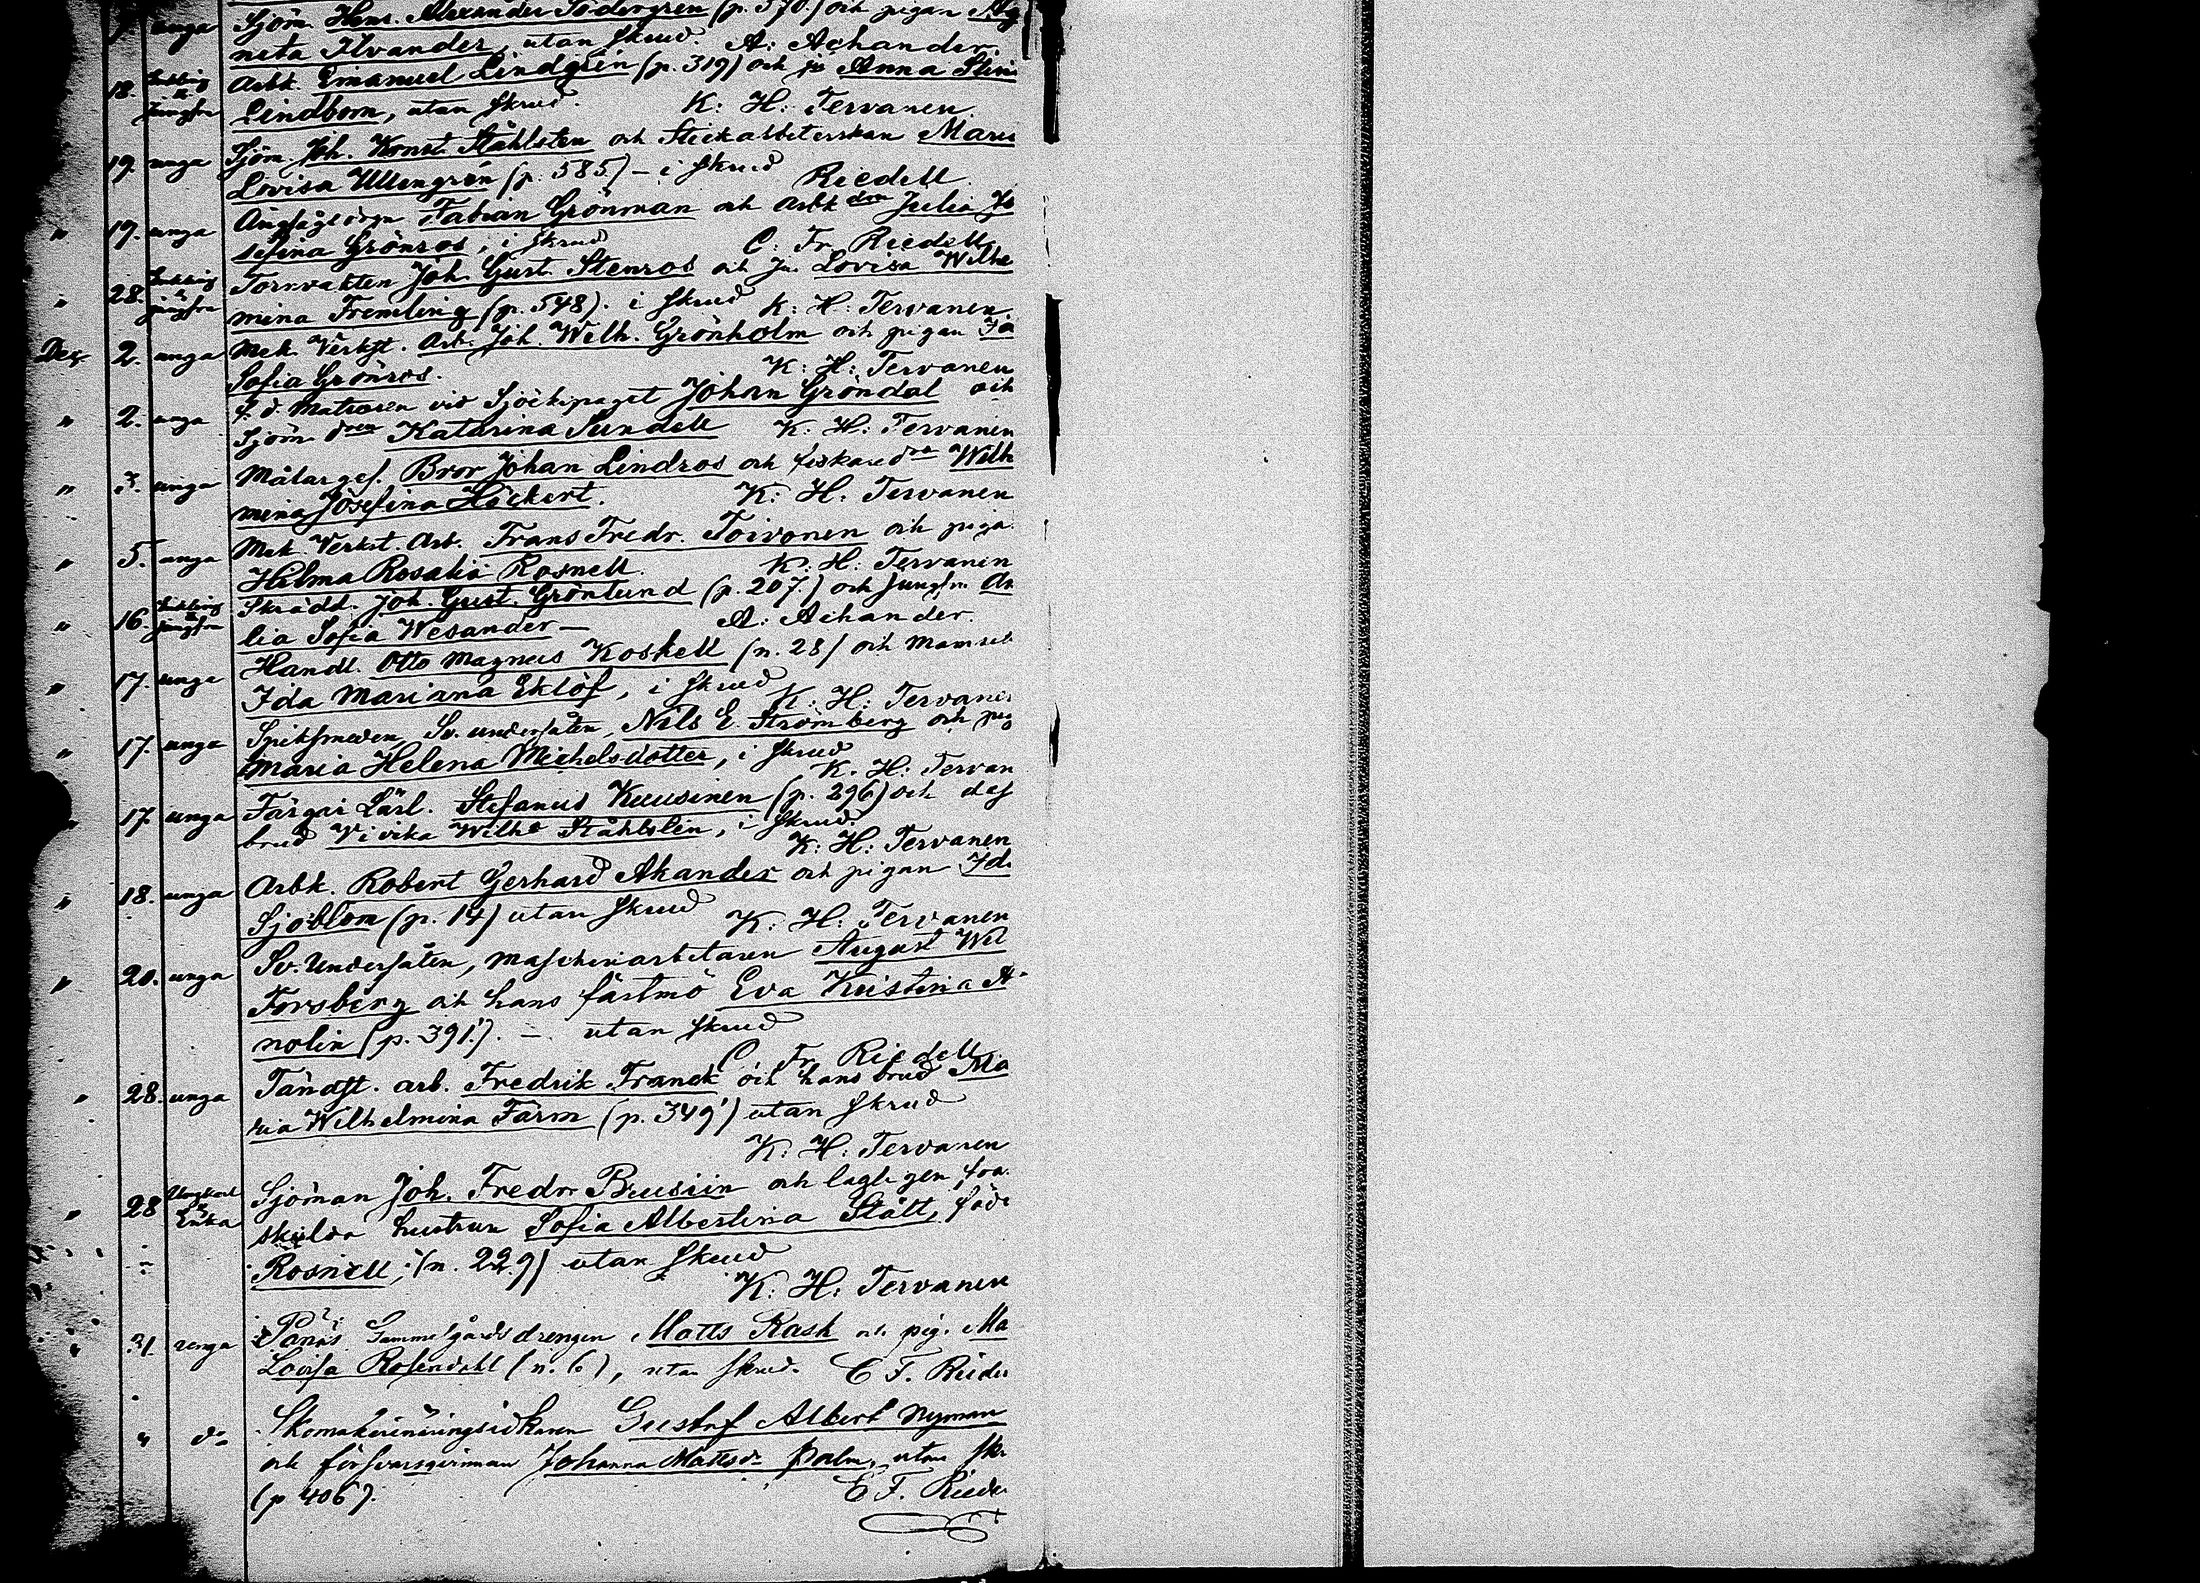 unga Sjöm. Henr. Alexander Södergren (p. 370.) och pigan Ag
neta Ilvander, utan skrud. A: Achander
18. jungfru Arbk. Emanuel Lindgrén (p. 319) och Anna Stin
Lindbom, utan skrud. K: H: Tervanen
19. unga Sjöm. Joh. Konst. Ståhlsten och Stickarbeterskan Maria
Lovisa Ullengrén (p. 585) – i skrud Riedell
" 19. unga Fabian Grönman och Arbk dra Julia Jo
sefina Grönros, i skrud C: Fr. Riedell
" 28. jungfru Tornvakten Joh. Gust. Stenros och Ju. Lovisa Wilhe
mina Fremling (p. 548). i skrud K: H: Tervanen
Dec. 2. unga Mek. Verkst. Arb. Joh. Wilh. Grönholm och pigan
Sofia Grönros. K: H: Tervanen
" 2. unga f. d. Matrosen vid Sjöekipaget Johan Gröndal och
Sjöm. dren Katarina Sundell K: H: Tervanen
" 3. unga Målarges. Bror Johan Lindros och fiskare dra Wilh
mina Josefina Höckert. K: H: Tervanen
" 5. unga Mek. Verkst. Arb. Frans Fredr. Toivonen och piga
Hilma Rosalia Rosnell. K: H: Tervanen
" 16. jungfru Skrädd. Joh. Gust. Grönlund (p. 207.) och Jungfru
lia Sofia Wesander – A: Achander.
" 17. unga Handl. Otto Magnus Koskell (p. 28) och Mamsell
Ida Mariana Eklöf, i skrud K: H: Tervanen
" 17. unga Spiksmeden, Sv. undersåten, Nils E. Strömberg och pig
Maria Helena Michelsdotter, i skrud K. H: Tervan
" 17. unga Färgari Lärl. Stefanus Kuusinen (p. 296) och dess
brud Vivika Wilh:a Ståhlstén, i skrud. K: H: Tervanen
" 18. unga Arbk. Robert Gerhard Akander och pigan Ida
Sjöblom (p. 14) utan skrud K: H: Tervanen
" 20. unga Sv. Undersåten, maskinarbetaren August Wil
Forsberg och hans fästmö Eva Kristina
nolin (p. 391.). – utan skrud
C. Fr. Riedell.
" 28. unga Tändst. arb. Fredrik Franck och hans brud Ma
ria Wilhelmina Färm (p. 349) utan skrud
K: H: Tervanen
" 28 Ungkarl & Enka Sjöman Joh. Fredr. Brusiin och lagligen från
skilda hustrun Sofia Albertina Stålt, född
Rosnell, (p. 229) utan skrud
K: H: Tervanen
" 31. unga Pånäs Gammelgårds drengen Matts Rask och pig. Ma
Lovisa Rosendahl (p. 6), utan skrud. C F. Riedel
" do Skomakerinäringsidkaren Gustaf Albert Nyman
och försvarsqvinnan Johanna Mattsdr Palm, utan sk
(p 406). C F. Riedel